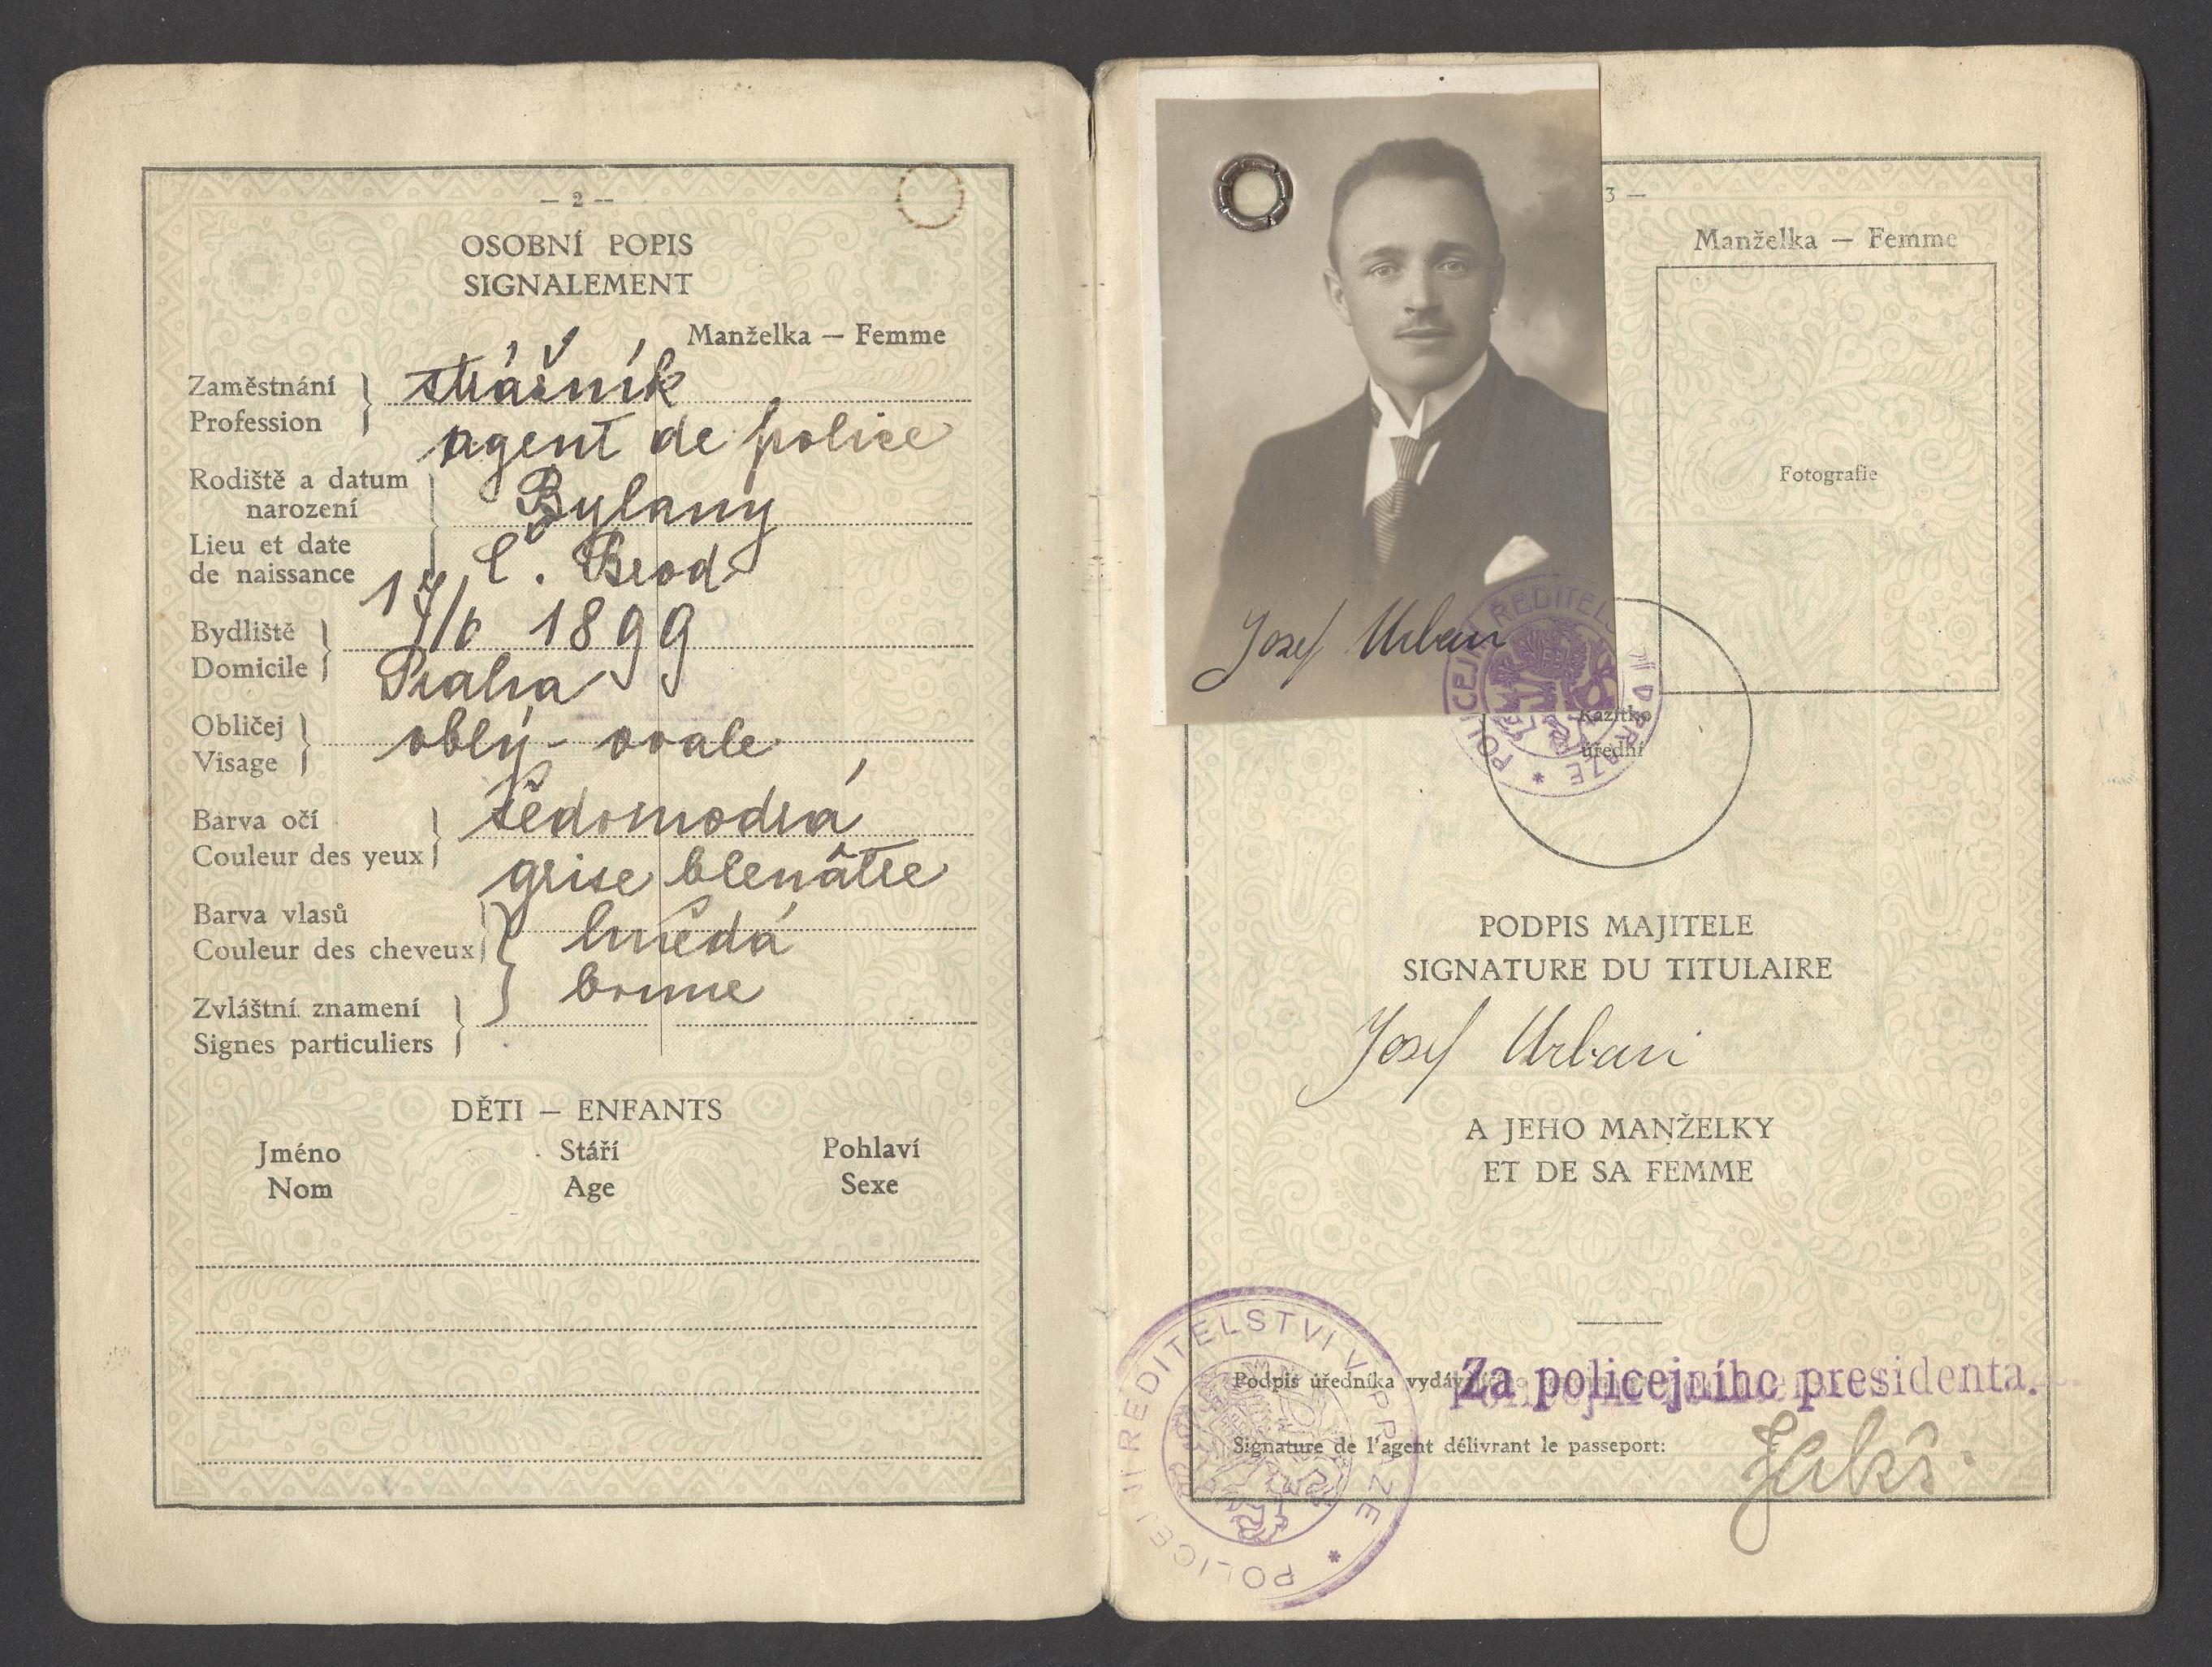 — 2 —
OSOBNÍ POPIS
SIGNALEMENT
Manželka — Femme
Zaměstnání
Profession
strážník
agent de police
Rodiště a datum
narození
Lieu et date
de naissance
Bylany
Č. Brod
17/6 1899
Bydliště
Domicile
Praha
Obličej
Visage
oblý - ovale
Barva očí
Couleur des yeux
šedomodrá
grise bleuâtre
Barva vlasů
Couleur des cheveux
hnědá
brune
Zvláštní znamení
Signes particuliers
DĚTI — ENFANTS
Jméno Stáří Pohlaví
Nom Age Sexe
3 —
Manželka — Femme
Fotografie
Josef Urban
POLICEJNÍ ŘEDITELSTVÍ V PRAZE *
Razítko
úřední
PODPIS MAJITELE
SIGNATURE DU TITULAIRE
Josef Urban
A JEHO MANŽELKY
ET DE SA FEMME
POLICEJNÍ ŘEDITELSTVÍ V PRAZE *
Podpis úředníka
Za policejního presidenta.
Signature de l'agent délivrant le passeport: